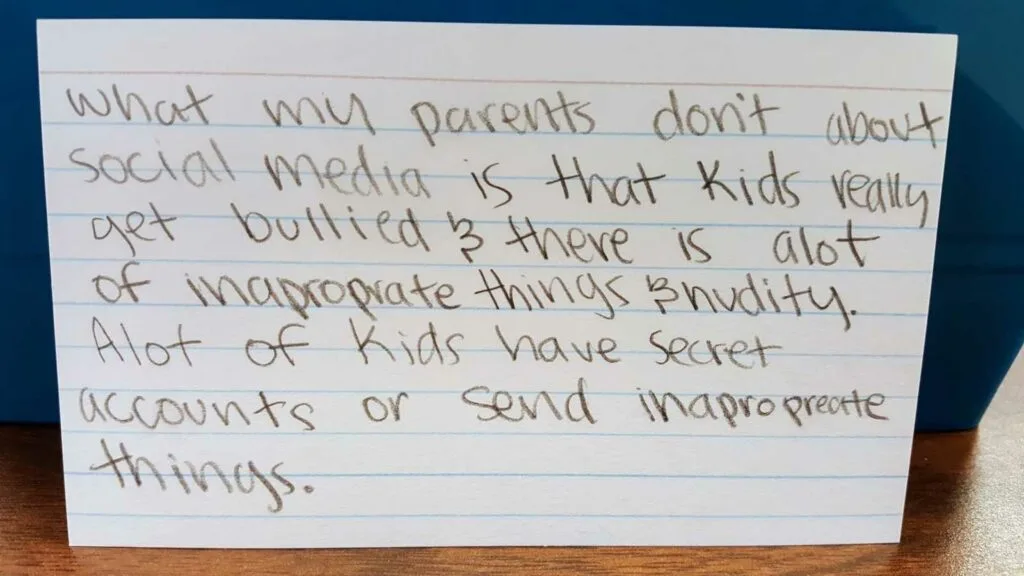 what my parents don't about
social media is that kids really
get bullied & there is alot
of inaproprate things & nudity.
Alot of kids have secret
accounts or send inapropreate
things.